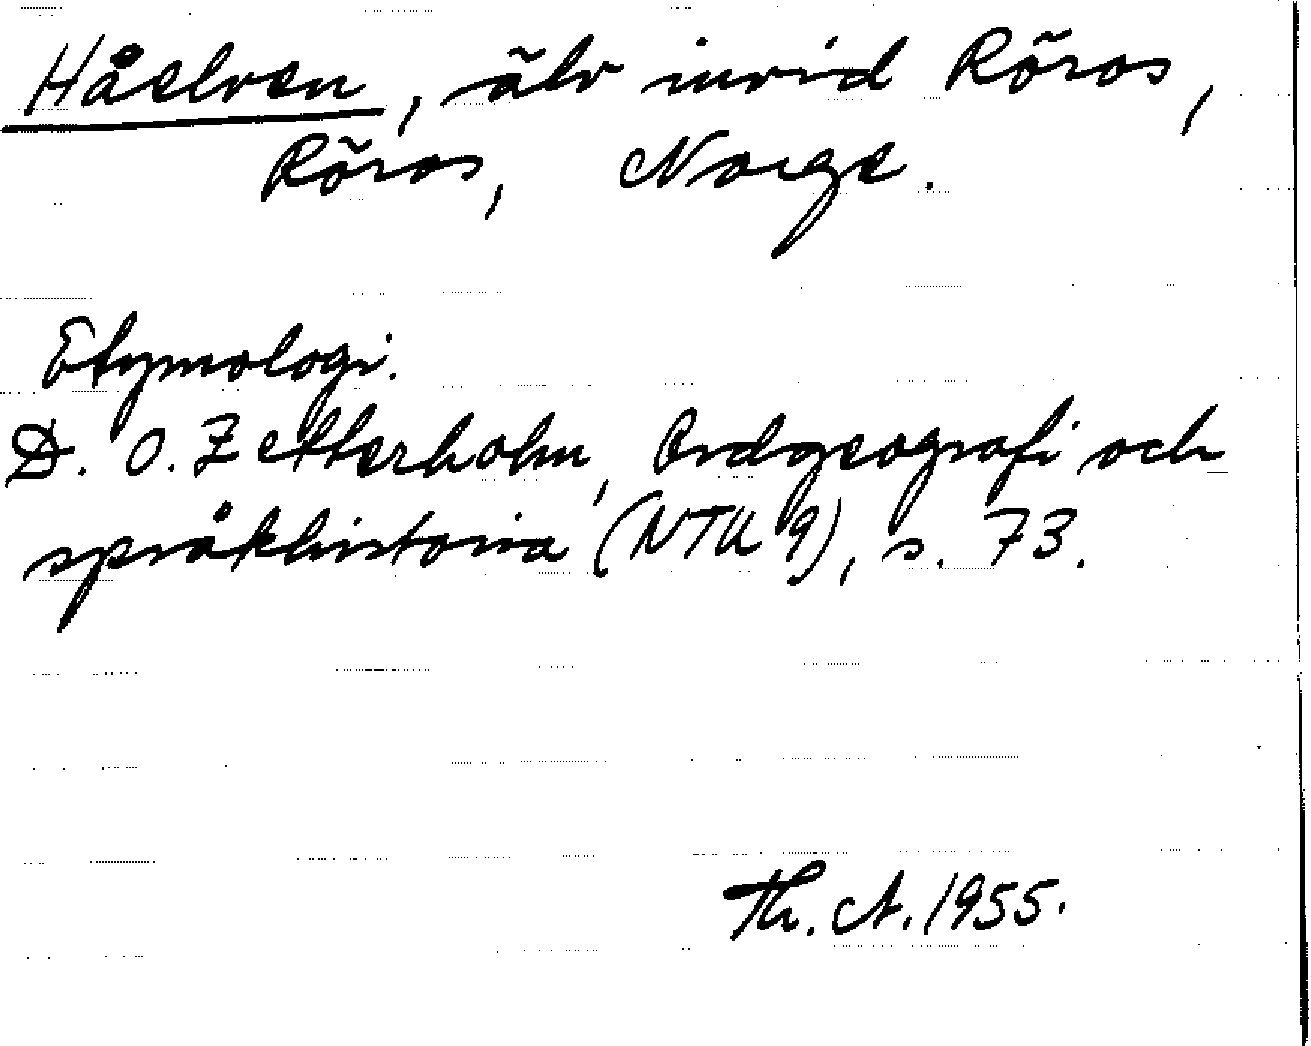 Håelven, älv invid Röros,
Röros, Norge.
Etymologi.
D. O. Zetterholm, Ordgeografi och
språkhistoria (NTU 9), s. 73.
Th. A. 1955.